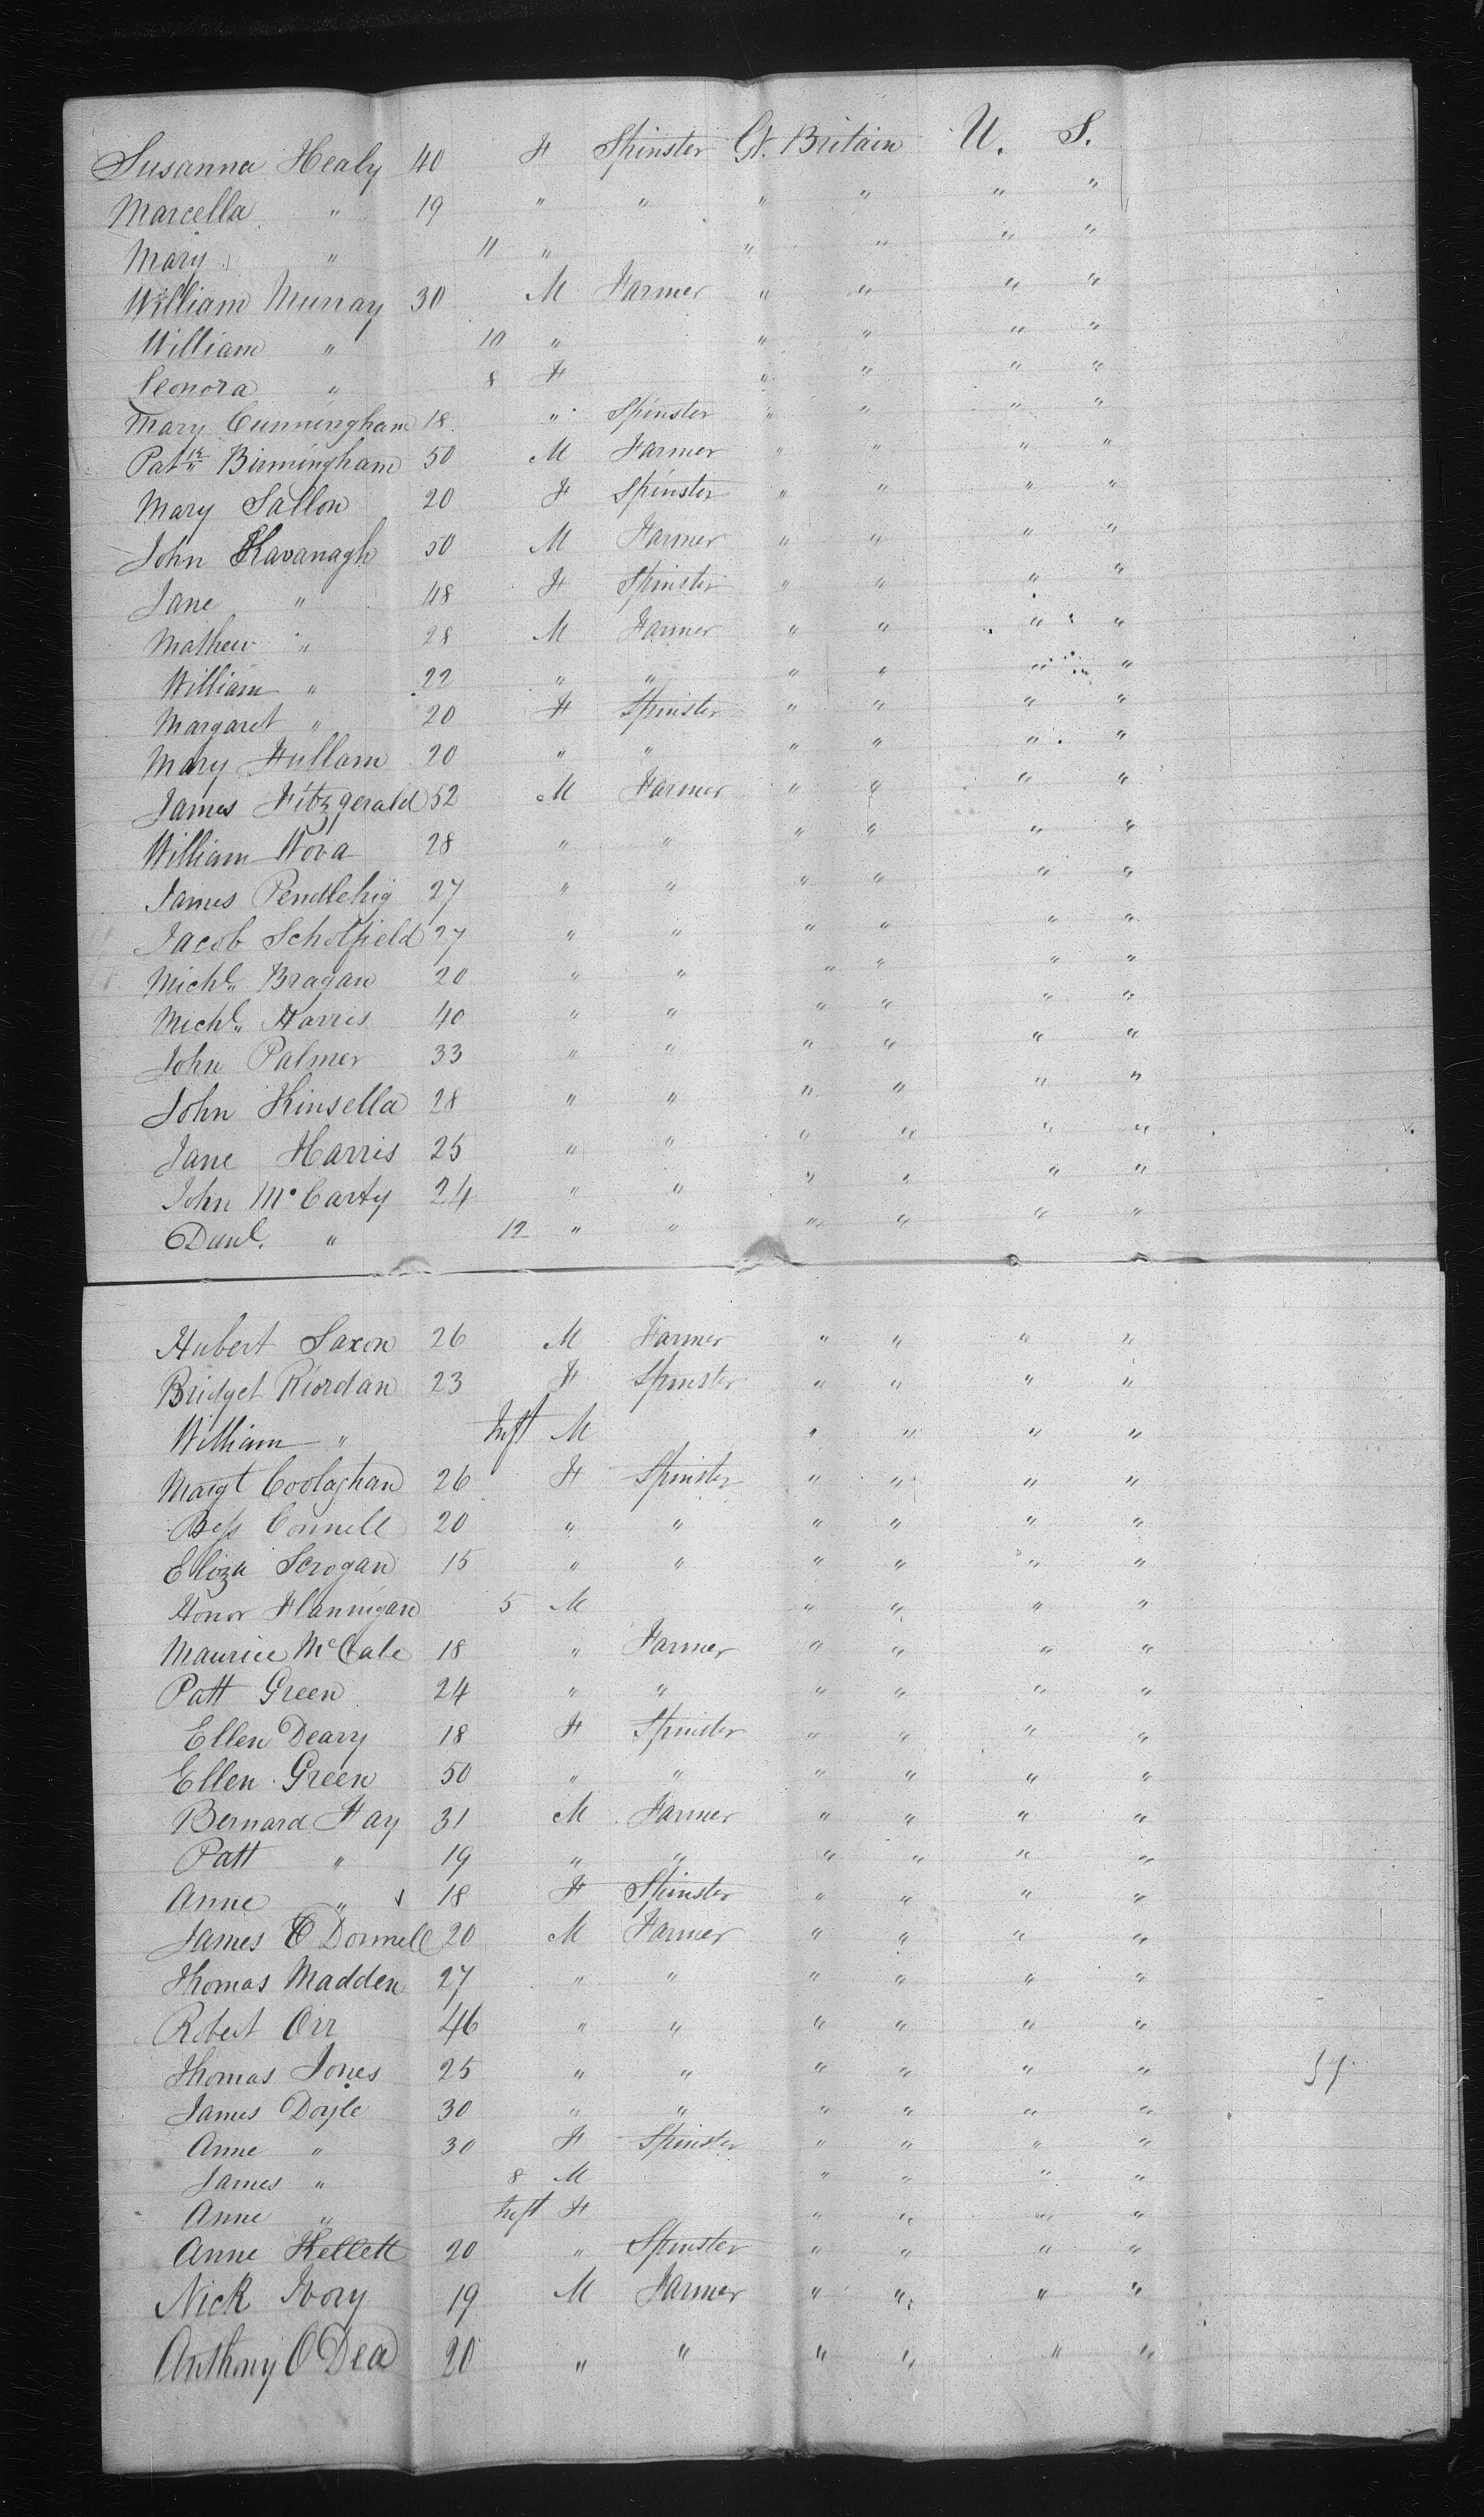 Susanna Healy 40 F Spinster Gt. Britain U. S.
Marcella " 19 " " " " " "
Mary " 11 " " " " "
William Murray 30 M Farmer " " " "
William " 10 " " " " "
Leonora " 8 F " " " "
Mary Cunningham 18 " Spinster " " " "
Patrk Birmingham 50 M Farmer " " " "
Mary Sallon 20 F Spinster " " " "
John Kavanagh 50 M Farmer " " " "
Jane " 48 F Spinster " " " "
Mathew " 28 M Farmer " " " "
William " 22 " " " " " "
Margaret " 20 F Spinster " " " "
Mary Fullam 20 " " " " " "
James Fitzgerald 52 M Farmer " " " "
William Nova 28 " " " " " "
James Pendlehig 27 " " " " " "
Jacob Scholfield 27 " " " " " "
Michl. Bragan 20 " " " " " "
Michl. Harris 40 " " " " " "
John Palmer 33 " " " " " "
John Kinsella 28 " " " " " "
Jane Harris 25 " " " " " "
John McCarty 24 " " " " " "
Danl. " 12 " " " " " "
Hubert Saxon 26 M Farmer " " " "
Bridget Riordan 23 F Spinster " " " "
William " Inft M " " " "
Margt Coolaghan 26 F Spinster " " " "
Bess Connell 20 " " " " " "
Eliza Scrogan 15 " " " " " "
Honor Flannigan 5 M " " " "
Maurice McCale 18 " Farmer " " " "
Patt Green 24 " " " " " "
Ellen Deary 18 F Spinster " " " "
Ellen Green 50 " " " " " "
Bernard Fay 31 M Farmer " " " "
Patt " 19 " " " " " "
Anne " 18 F Spinster " " " "
James O Donnell 20 M Farmer " " " "
Thomas Madden 27 " " " " " "
Robert Orr 46 " " " " " "
Thomas Jones 25 " " " " " "
James Doyle 30 " " " " " "
Anne " 30 F Spinster " " " "
James " 8 M " " " "
Anne " Inft F " " " "
Anne Kellett 20 " Spinster " " " "
Nick Ivory 19 M Farmer " " " "
Anthony O Dea 20 " " " " " "